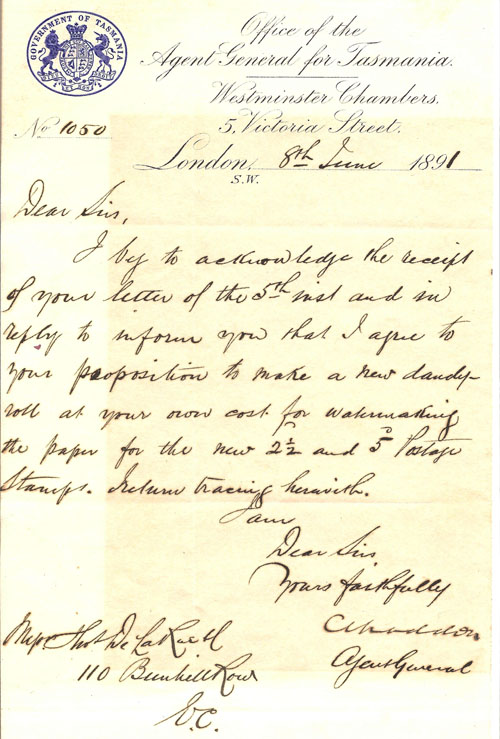 GOVERNMENT OF TASMANIA
Office of the
Agent General for Tasmania.
Westminster Chambers.
No 1050
5, Victoria Street.
London, 8th June 1891
S.W.
Dear Sirs,
I beg to acknowledge the receipt
of your letter of the 5th inst and in
reply to inform you that I agree to
your proposition to make a new dandy-
roll at your own cost for watermaking
the paper for the new 2½ and 5 Postage
Stamps. I return tracing herewith.
I am
Dear Sirs
Yours faithfully
Agent General
Messrs Thos De La Rue &
110 Bunhill Row
E.C.